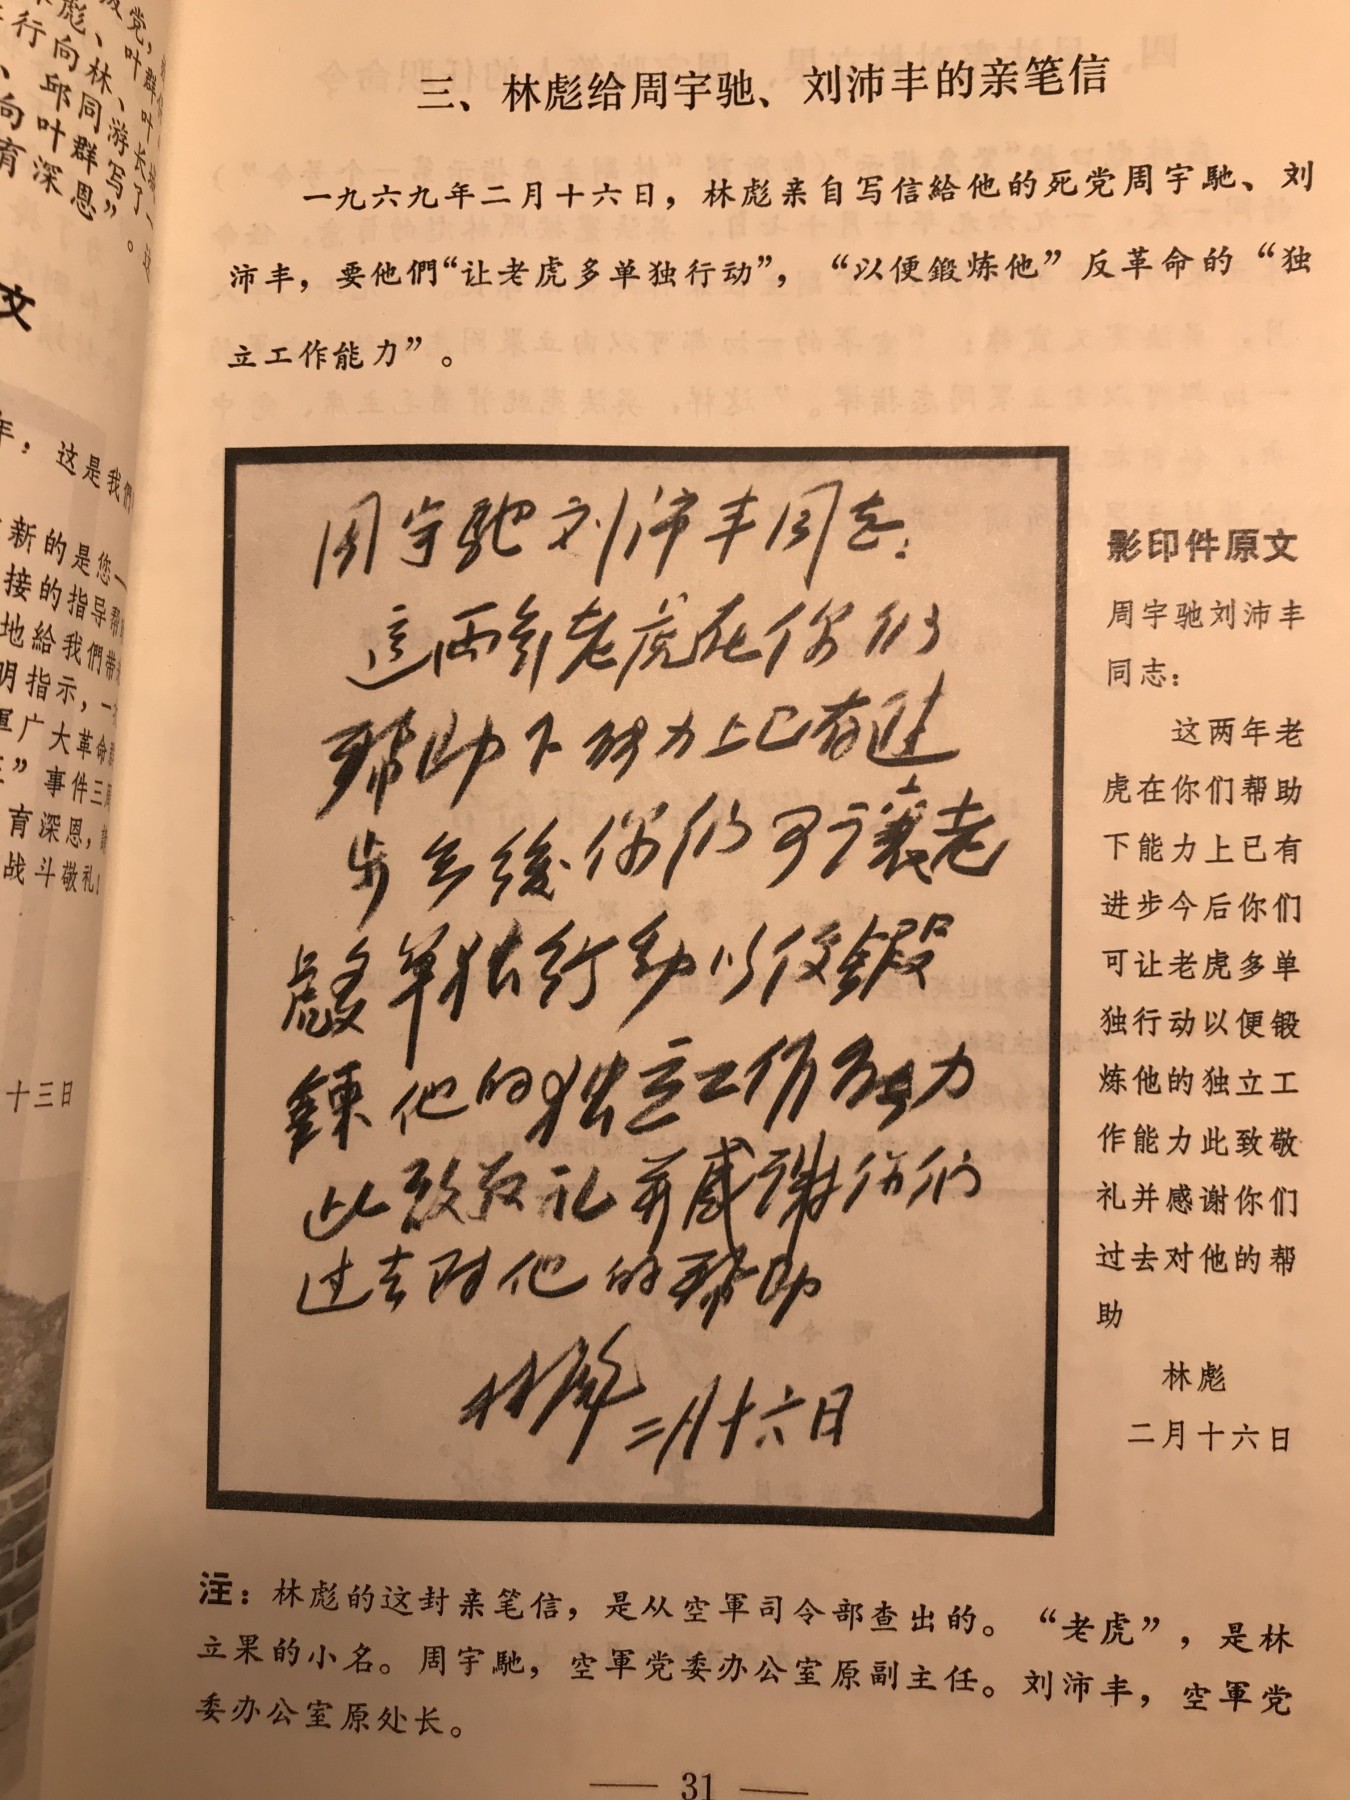 三、林彪给周宇驰、刘沛丰的亲笔信
一九六九年二月十六日，林彪亲自写信給他的死党周宇馳、刘
沛丰，要他們“让老虎多单独行动”，“以便鍛炼他”反革命的“独
立工作能力”。
周宇驰刘沛丰同志：
这两年老虎在你们
帮助下能力上已有进
步今後你们可讓老
虎多单独行动以便鍛
鍊他的独立工作能力
此致敬礼并感谢你们
过去对他的帮助
林彪 二月十六日
影印件原文
周宇驰刘沛丰
同志：
这两年老
虎在你们帮助
下能力上已有
进步今后你们
可让老虎多单
独行动以便锻
炼他的独立工
作能力此致敬
礼并感谢你们
过去对他的帮
助
林彪
二月十六日
注：林彪的这封亲笔信，是从空軍司令部查出的。“老虎”，是林
立果的小名。周宇馳，空軍党委办公室原副主任。刘沛丰，空軍党
委办公室原处长。
— 31 —
文
年：这是我們
新的是您一
接的指导帮
地給我們带
明指示，一
軍广大革命
”事件三周
育深恩，
战斗敬礼！
十三日